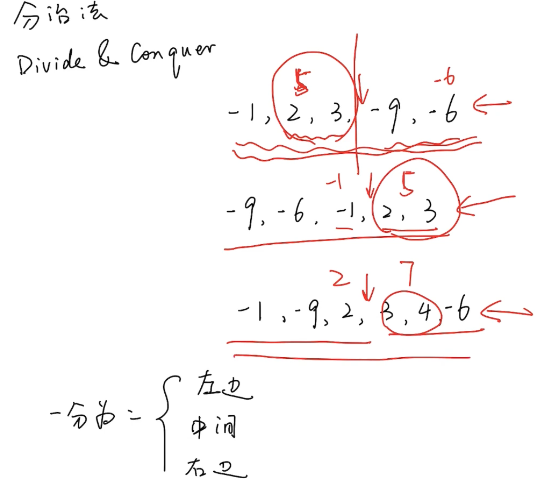 分治法
Divide & Conquer
5 -6
-1, 2, 3, -9, -6
-1 5
-9, -6, -1, 2, 3
2 7
-1, -9, 2, 3, 4, -6
左边
一分为二
中间
右边